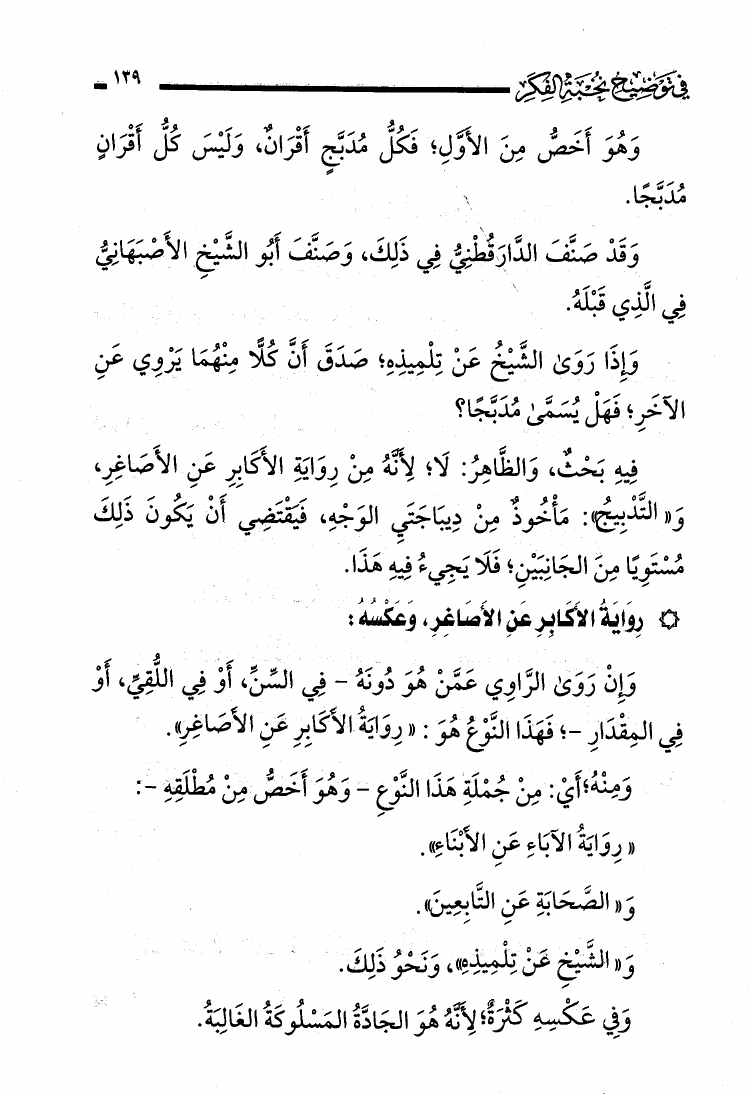 في توضيح نخبة الفكر ١٣٩
وَهُوَ أَخَصُّ مِنَ الأَوَّلِ؛ فَكُلُّ مُدَبَّجٍ أَقْرَانٌ، وَلَيْسَ كُلُّ أَقْرَانٍ
مُدَبَّجًا.
وَقَدْ صَنَّفَ الدَّارَقُطْنِيُّ فِي ذَلِكَ، وَصَنَّفَ أَبُو الشَّيْخِ الأَصْبَهَانِيُّ
فِي الَّذِي قَبْلَهُ.
وَإِذَا رَوَىٰ الشَّيْخُ عَنْ تِلْمِيذِهِ؛ صَدَقَ أَنَّ كُلًّا مِنْهُمَا يَرْوِي عَنِ
الآخَرِ؛ فَهَلْ يُسَمَّىٰ مُدَبَّجًا؟
فِيهِ بَحْثٌ، وَالظَّاهِرُ: لَا؛ لِأَنَّهُ مِنْ رِوَايَةِ الأَكَابِرِ عَنِ الأَصَاغِرِ،
وَ«التَّدْبِيجُ»: مَأْخُوذٌ مِنْ دِيبَاجَتَيِ الوَجْهِ، فَيَقْتَضِي أَنْ يَكُونَ ذَلِكَ
مُسْتَوِيًا مِنَ الجَانِبَيْنِ؛ فَلَا يَجِيءُ فِيهِ هَذَا.
۞ رِوَايَةُ الأَكَابِرِ عَنِ الأَصَاغِرِ، وَعَكْسُهُ:
وَإِنْ رَوَىٰ الرَّاوِي عَمَّنْ هُوَ دُونَهُ - فِي السِّنِّ، أَوْ فِي اللُّقِيِّ، أَوْ
فِي المِقْدَارِ -؛ فَهَذَا النَّوْعُ هُوَ: «رِوَايَةُ الأَكَابِرِ عَنِ الأَصَاغِرِ».
وَمِنْهُ؛ أَيْ: مِنْ جُمْلَةِ هَذَا النَّوْعِ - وَهُوَ أَخَصُّ مِنْ مُطْلَقِهِ -:
«رِوَايَةُ الآبَاءِ عَنِ الأَبْنَاءِ».
وَ«الصَّحَابَةِ عَنِ التَّابِعِينَ».
وَ«الشَّيْخِ عَنْ تِلْمِيذِهِ»، وَنَحْوُ ذَلِكَ.
وَفِي عَكْسِهِ كَثْرَةٌ؛ لِأَنَّهُ هُوَ الجَادَّةُ المَسْلُوكَةُ الغَالِبَةُ.